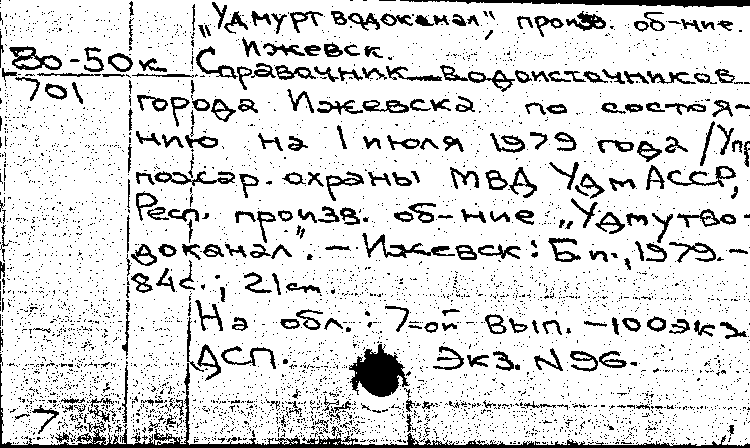 „Удмуртводоканал", произв. об-ние.
Ижевск.
Во-50к Справочник водоисточников
701 города Ижевска по состоя-
нию на 1 июля 1979 года / Упр
пожар. охраны МВД УдмАССР,
Респ. произв. об-ние „Удмутво-
доканал". – Ижевск: Б.и., 1979. –
84с.; 21см.
На обл.: 7-ой вып. – 100экз
ДСП. Экз. N96.
7